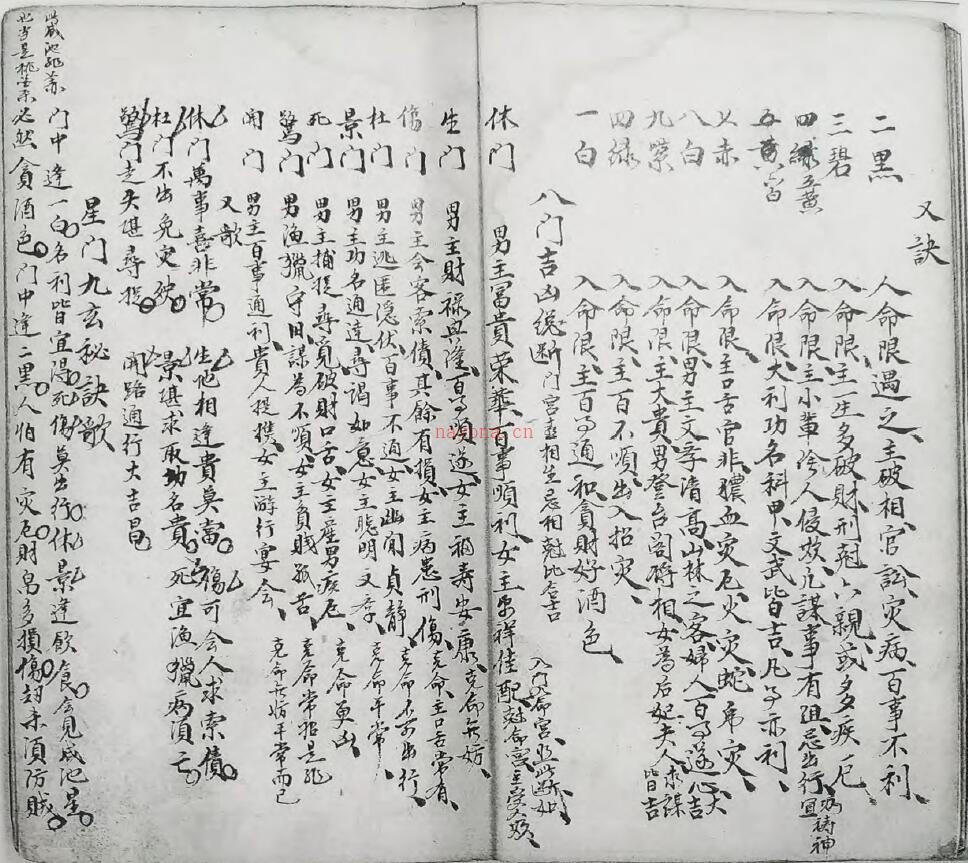 又訣
二黑 入命限遇之主破相官訟灾病百事不利
三碧 入命限主一生多破財刑尅六親或多疾厄
四綠 入命限主小輩陰人侵欺凡謀事有阻忌出行宜祷神
五黃 入命限大利功名科甲文武皆吉凡事亦利
七赤 入命限主口舌官非膿血灾厄火灾蛇帝灾
八白 入命限男主文字清高山林之客婦人百事遂心大吉
九紫 入命限主大貴男登台阁將相女為后妃夫人求謀皆吉
四綠 入命限主百不順出入招灾
一白 入命限主百事通和貪財好酒色
八門吉凶总断 門宮喜相生忌相尅比合吉 入門入命宮並此断如
休門 男主冨貴荣華百事順利女主 祥佳配尅命宮主
生門 男主財禄兴隆百事順遂女主福寿安康克命无妨
傷門 男主会客索債其餘有損女主病患刑傷克命主口舌常有
杜門 男主逃匿隱伏百事不通女主幽閒貞静克命不宜出行
景門 男主功名通達尋谒如意女主聰明文孝克命平常
死門 男主捕捉尋覓破財口舌女主産男疾厄克命更凶
驚門 男漁獵守旧謀為不順女主負賤孤舌克命常非是
開門 男主百事通利貴人提携女主游行宴会克命无妨平常而已
又歌
休門萬事喜非常 生他相逢貴莫當 傷可会人求索債
杜門不出免灾殃 景堪求取功名貴 死宜漁獵病須亡
驚門走失堪尋捉 開路通行大吉昌
星門九玄秘訣歌
門中逢一白名利皆宜得死傷莫出行休景逢飲食会見咸池星
必然貪酒色門中逢二黑人怕有灾厄財帛多損傷劫杀須防賊